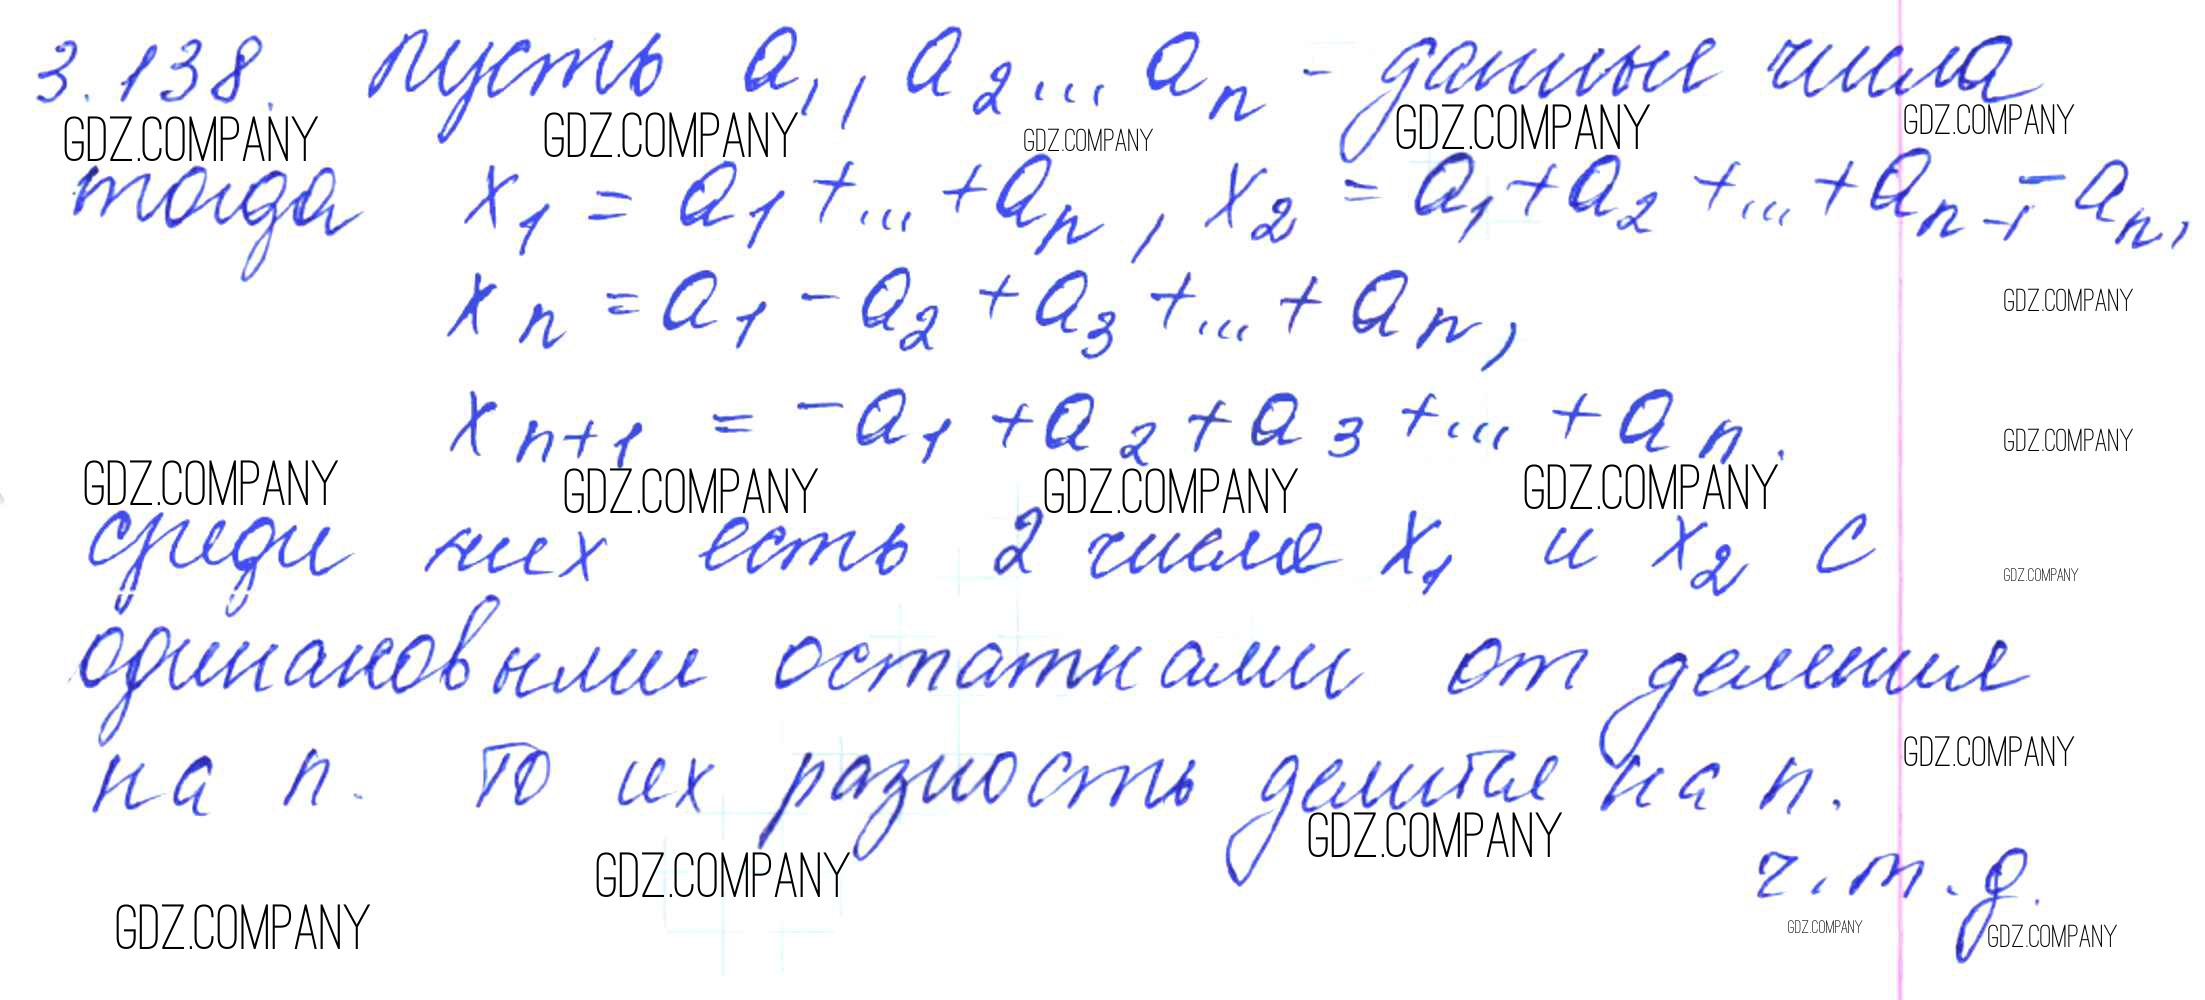 3.138. пусть a₁, a₂... aₙ - данные числа
GDZ.COMPANY GDZ.COMPANY GDZ.COMPANY GDZ.COMPANY GDZ.COMPANY
тогда x₁ = a₁ + ... + aₙ, x₂ = a₁ + a₂ + ... + aₙ₋₁ - aₙ,
xₙ = a₁ - a₂ + a₃ + ... + aₙ,
GDZ.COMPANY
xₙ₊₁ = -a₁ + a₂ + a₃ + ... + aₙ.
GDZ.COMPANY
GDZ.COMPANY GDZ.COMPANY GDZ.COMPANY GDZ.COMPANY
среди них есть 2 числа x₁ и x₂ с
GDZ.COMPANY
одинаковыми остатками от деления
на n. То их разность делится на n.
GDZ.COMPANY
GDZ.COMPANY GDZ.COMPANY
ч.т.д.
GDZ.COMPANY GDZ.COMPANY GDZ.COMPANY